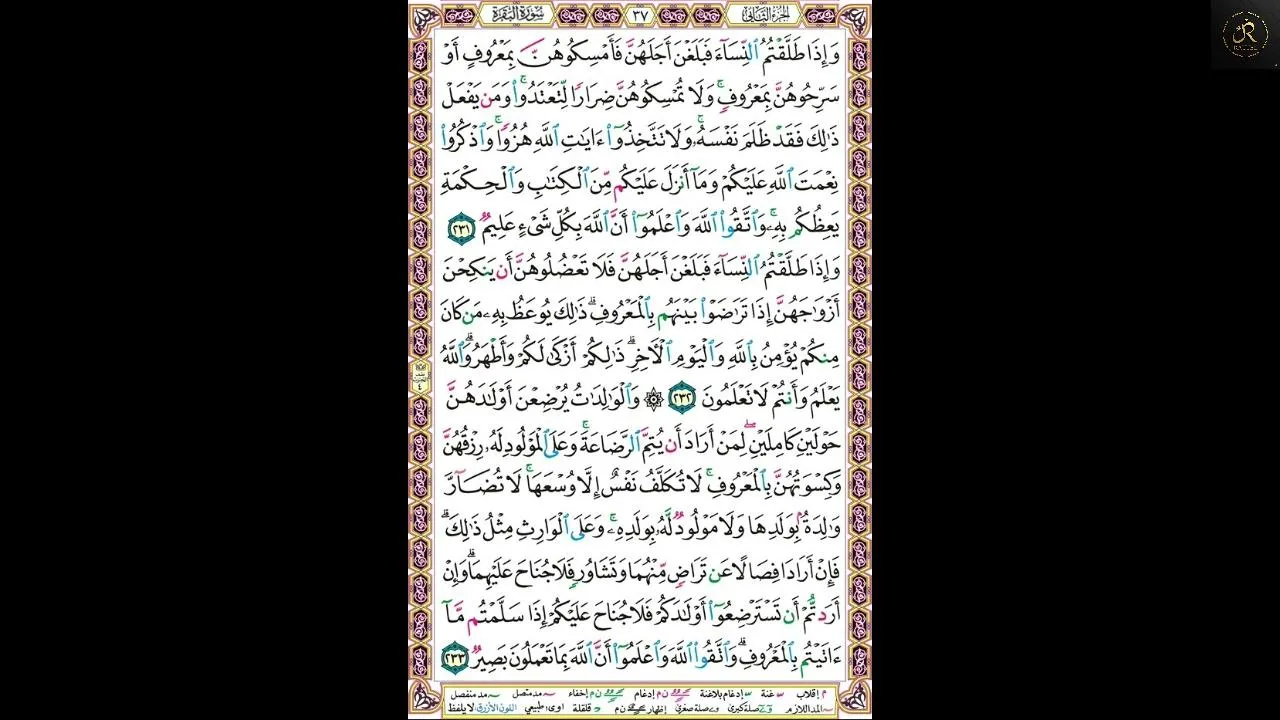 الجزء الثاني
٣٧
سورة البقرة
وَإِذَا طَلَّقْتُمُ ٱلنِّسَآءَ فَبَلَغْنَ أَجَلَهُنَّ فَأَمْسِكُوهُنَّ بِمَعْرُوفٍ أَوْ
سَرِّحُوهُنَّ بِمَعْرُوفٍۚ وَلَا تُمْسِكُوهُنَّ ضِرَارًا لِّتَعْتَدُوا۟ۚ وَمَن يَفْعَلْ
ذَٰلِكَ فَقَدْ ظَلَمَ نَفْسَهُۥۚ وَلَا تَتَّخِذُوٓا۟ ءَايَٰتِ ٱللَّهِ هُزُوًاۚ وَٱذْكُرُوا۟
نِعْمَتَ ٱللَّهِ عَلَيْكُمْ وَمَآ أَنزَلَ عَلَيْكُم مِّنَ ٱلْكِتَٰبِ وَٱلْحِكْمَةِ
يَعِظُكُم بِهِۦۚ وَٱتَّقُوا۟ ٱللَّهَ وَٱعْلَمُوٓا۟ أَنَّ ٱللَّهَ بِكُلِّ شَىْءٍ عَلِيمٌ ٢٣١
وَإِذَا طَلَّقْتُمُ ٱلنِّسَآءَ فَبَلَغْنَ أَجَلَهُنَّ فَلَا تَعْضُلُوهُنَّ أَن يَنكِحْنَ
أَزْوَٰجَهُنَّ إِذَا تَرَٰضَوْا۟ بَيْنَهُم بِٱلْمَعْرُوفِۗ ذَٰلِكَ يُوعَظُ بِهِۦ مَن كَانَ
مِنكُمْ يُؤْمِنُ بِٱللَّهِ وَٱلْيَوْمِ ٱلْءَاخِرِۗ ذَٰلِكُمْ أَزْكَىٰ لَكُمْ وَأَطْهَرُۗ وَٱللَّهُ
يَعْلَمُ وَأَنتُمْ لَا تَعْلَمُونَ ٢٣٢ ۞ وَٱلْوَٰلِدَٰتُ يُرْضِعْنَ أَوْلَٰدَهُنَّ
حَوْلَيْنِ كَامِلَيْنِۖ لِمَنْ أَرَادَ أَن يُتِمَّ ٱلرَّضَاعَةَۚ وَعَلَى ٱلْمَوْلُودِ لَهُۥ رِزْقُهُنَّ
وَكِسْوَتُهُنَّ بِٱلْمَعْرُوفِۚ لَا تُكَلَّفُ نَفْسٌ إِلَّا وُسْعَهَاۚ لَا تُضَآرَّ
وَٰلِدَةٌۢ بِوَلَدِهَا وَلَا مَوْلُودٌ لَّهُۥ بِوَلَدِهِۦۚ وَعَلَى ٱلْوَارِثِ مِثْلُ ذَٰلِكَۗ
فَإِنْ أَرَادَا فِصَالًا عَن تَرَاضٍ مِّنْهُمَا وَتَشَاوُرٍ فَلَا جُنَاحَ عَلَيْهِمَاۗ وَإِنْ
أَرَدتُّمْ أَن تَسْتَرْضِعُوٓا۟ أَوْلَٰدَكُمْ فَلَا جُنَاحَ عَلَيْكُمْ إِذَا سَلَّمْتُم مَّآ
ءَاتَيْتُم بِٱلْمَعْرُوفِۗ وَٱتَّقُوا۟ ٱللَّهَ وَٱعْلَمُوٓا۟ أَنَّ ٱللَّهَ بِمَا تَعْمَلُونَ بَصِيرٌ ٢٣٣
م إقلاب غنة إدغام بلاغنة ن م إدغام ن م إخفاء مد متصل مد منفصل
المد اللازم صلة كبرى صلة صغرى إظهار ن م قلقلة اوى طبيعي اللون الأزرق لا يلفظ